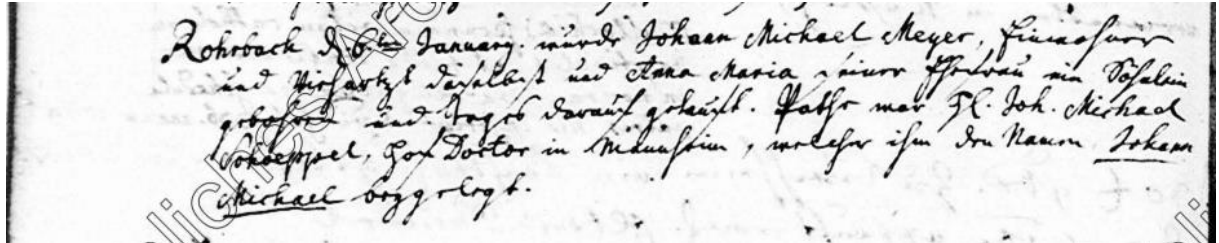 Rohrbach d. 6ten January. wurde Johann Michael Meyer, Einwohner
und Viehartzt daselbst und Anna Maria seiner Ehefrau ein Söhnlein
gebohren und Tages darauf getauft. Pathe war H. Joh. Michael
Schoeppel, Hof Doctor in Mannheim, welcher ihm den Namen Johann
Michael beygelegt.